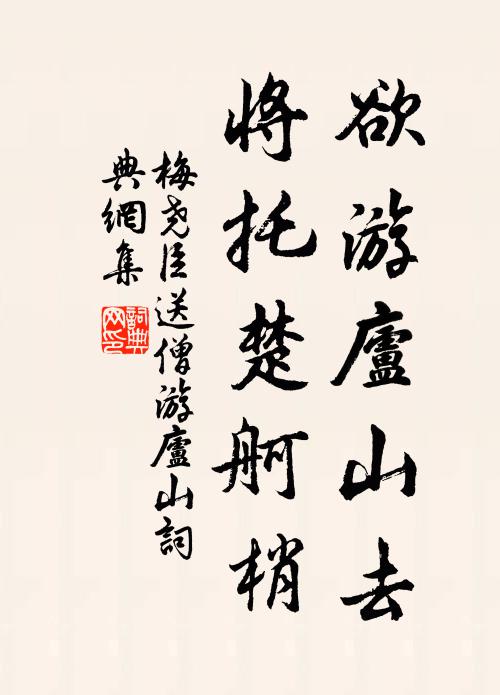 欲游廬山去
將托楚舸梢
梅尧臣送僧游廬山詞
典網集
詞典
网印